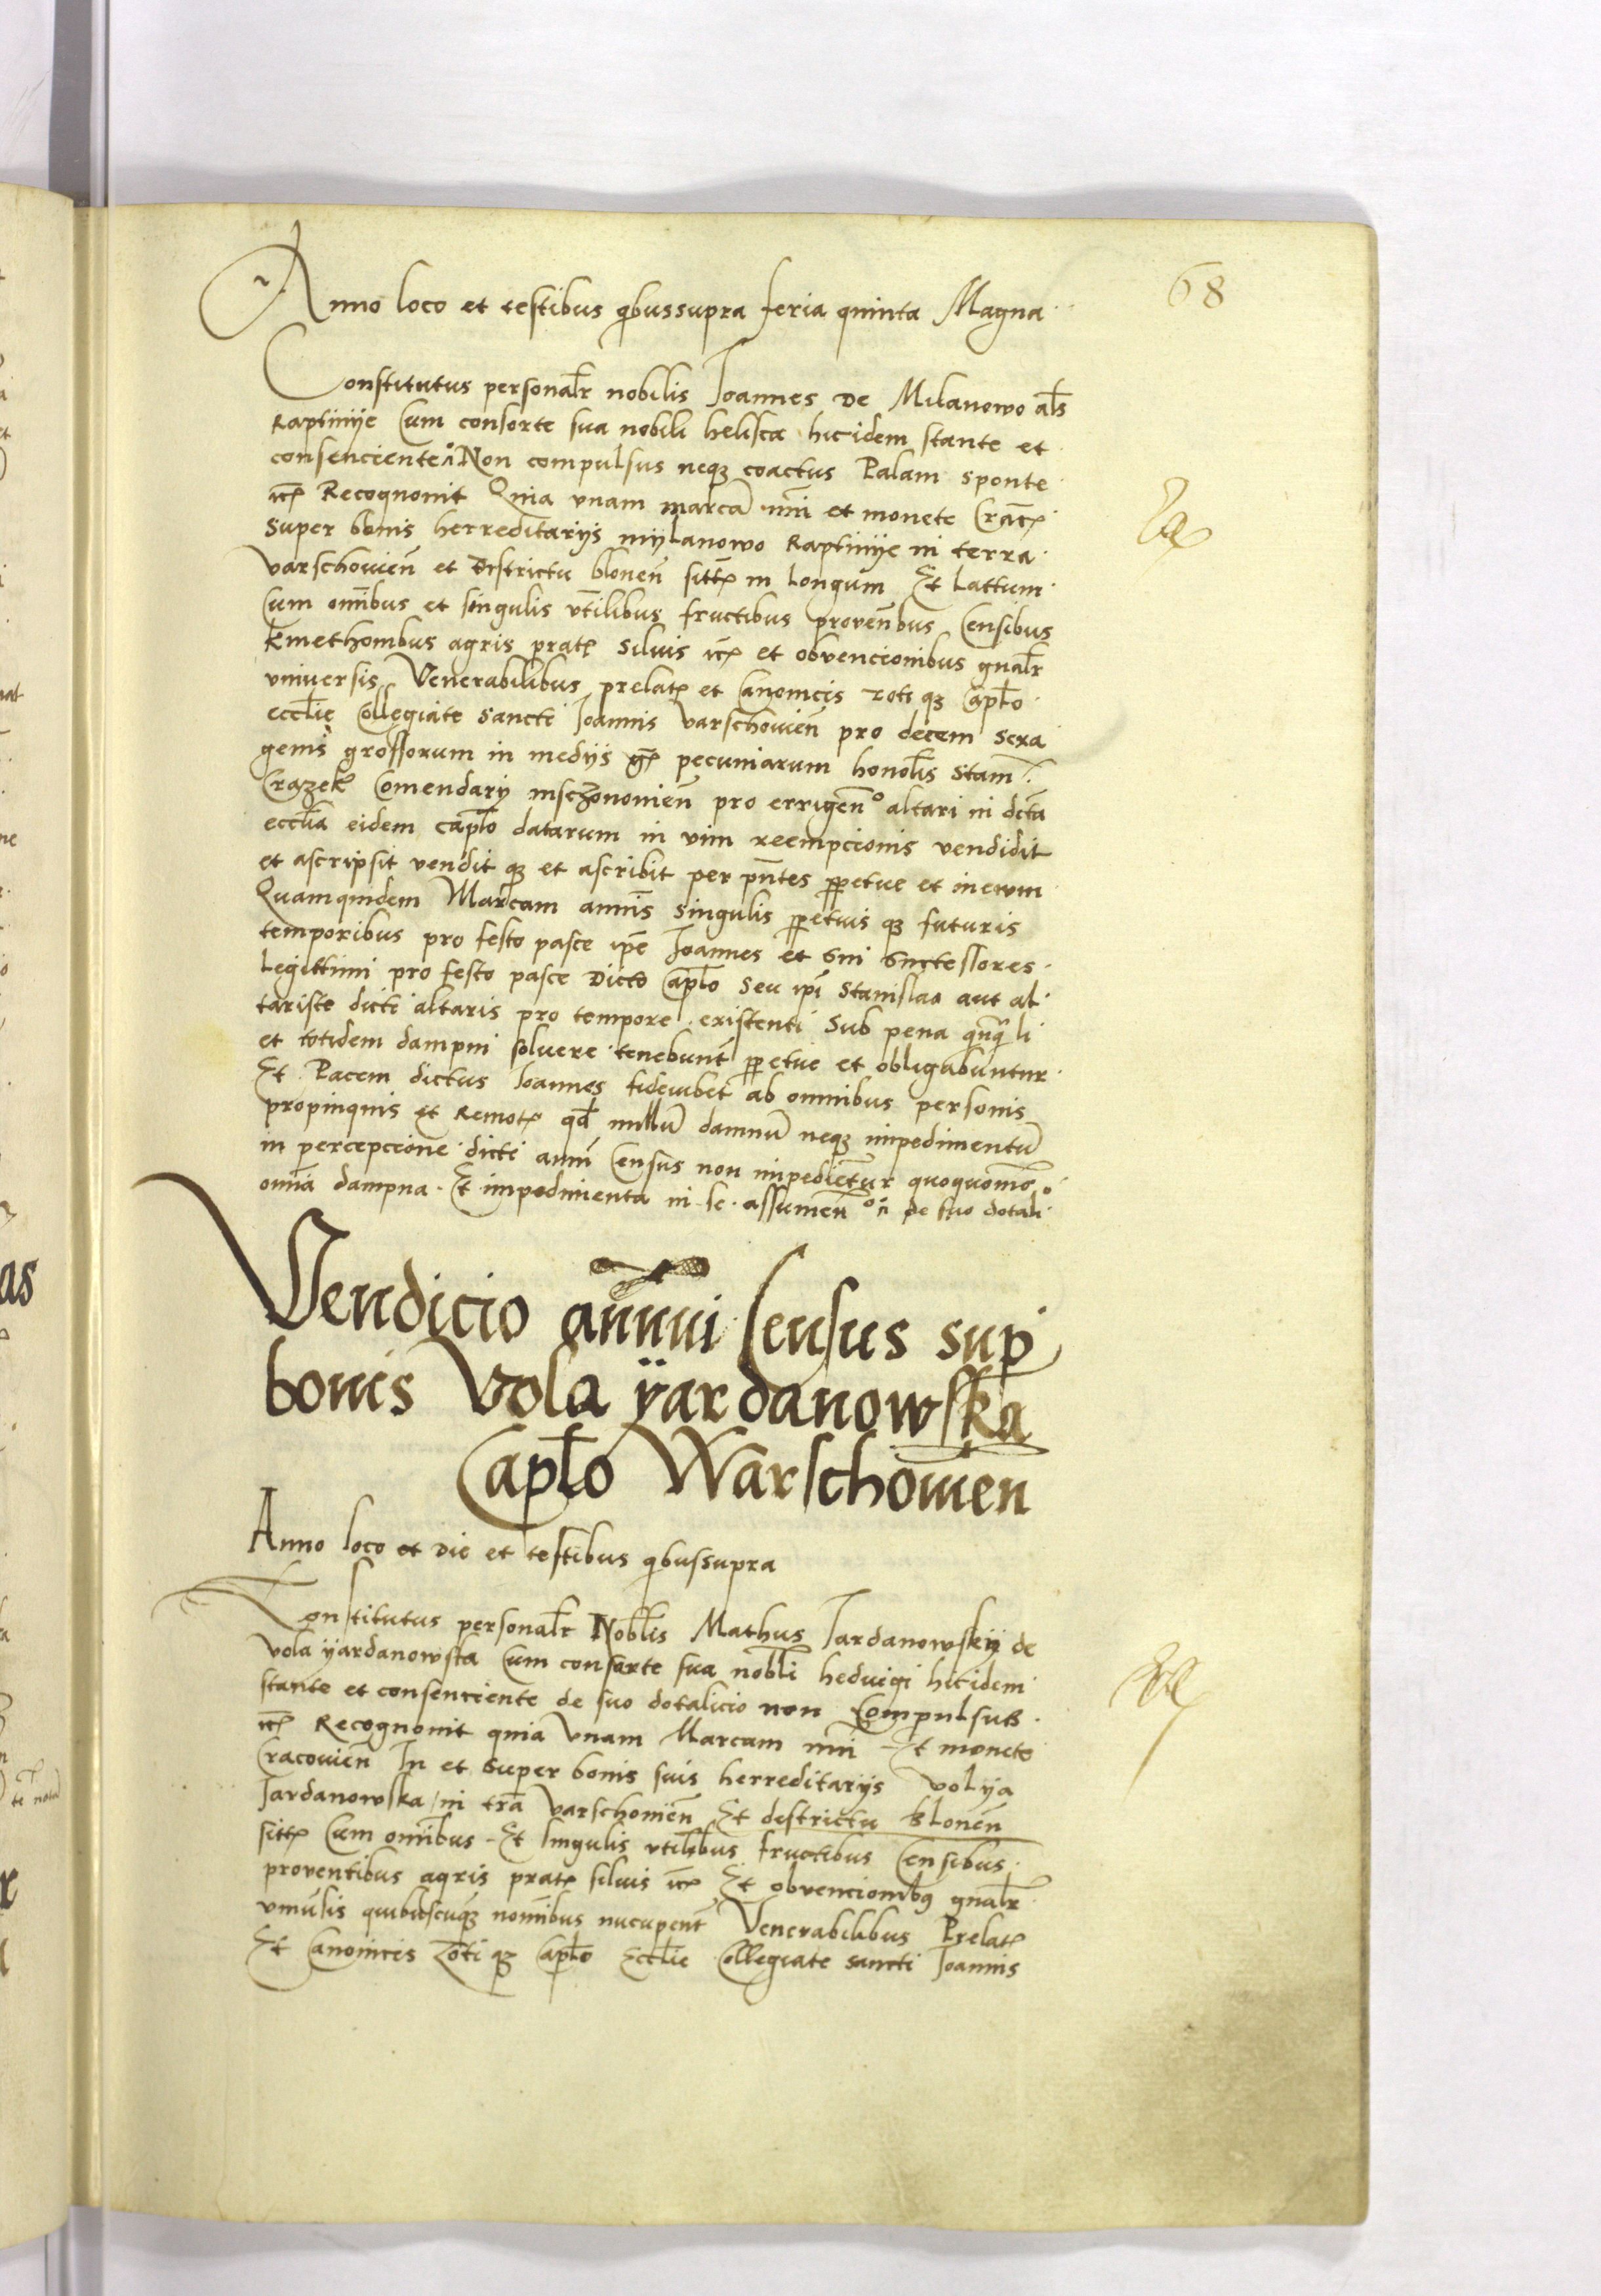 68
Anno loco et testibus qbussupra feria quinta Magna
Constitutus personalr nobilis Joannes de Milanowo als
Raptinije Cum consorte sua nobili helisca hicidem stante et
consenciente Non compulsus neqz coactus Palam sponte
etc Recognouit Quia vnam marca nūi et monete Cracz
super bonis herreditarijs mijlanowo Raptinije in terra
Varschouien̄ et Districtu blonen̄ sittz in longum Et Lattum
Cum omībus et singulis vtilibus fructibus proven̄bus Censibus
kmethonibus agris pratz siluis etc et obvencionibus gnalr
vniversis Venerabilibus prelatz et Canonicis totiqz Caplo
ecclie Collegiate sancti Joannis Varschouien̄ pro decem sexa
genis grossorum in medijs gz pecuniarum honolis Stani
Crazek Comendarij mschzononien̄ pro errigen̄o altari in dcta
ecclia eidem Caplo datarum in vim reempcionis vendidit
et ascripsit vendit qz et ascribit per pn̄tes ppetue et in ewm
Quamquidem Marcam annis singulis ppetuis qz futuris
temporibus pro festo pasce ipe Joannes et sui suctessores
Legittimi pro festo pasce Dicto Caplo seu ipi Stanislao aut al
tariste dicti altaris pro tempore existenti sub pena qnqz li
et totidem dampni soluere tenebunt ppetue et obligabuntur
Et Pacem dictus Joannes fideiubet ab omnibus personis
propinquis et Remotz qd nullu damnu neqz impedimentu
in percepcione dicti annui Census non impedietur quoquomo
omia dampna Et impedimenta in se assumen̄o de suo dotali
Vendicio annui Census sup
bonis Vola ÿardanowska
Caplo Warschouien
Anno loco et die et testibus qbussupra
Constitutus personalr Noblis Mathus Jardanowskij de
Vola ÿardanowska Cum consorte sua nobli heduigi hicidem
stante et consenciente de suo dotalicio non Compulsus
etc Recognouit quia Vnam Marcam nūi Et monete
Cracouien̄ In et super bonis suis herreditarijs Volya
Jardanowska in tra Varschouien̄ Et destrictu Blonen̄
sittz Cum omībus Et singulis vtilibus fructibus Censibus
proventibus agris pratz siluis etc Et obvencionibg gnalr
vniūsis quibuscuqz nomībus nucupent Venerabilibus Prelatz
Et Canonicis Toti qz Caplo Ecclie Collegiate sancti Joannis